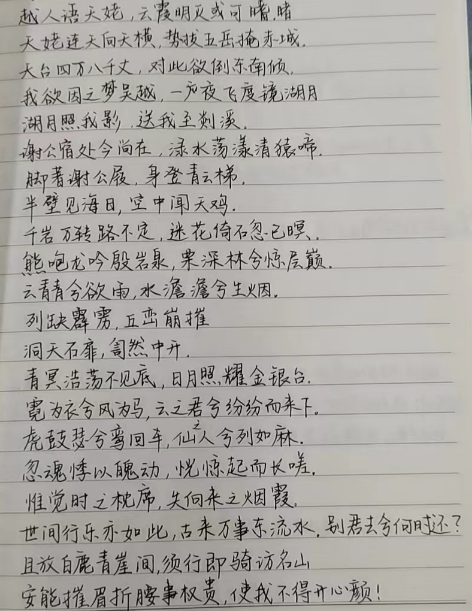 越人语天姥,云霞明灭或可睹.睹
天姥连天向天横,势拔五岳掩赤城.
天台四万八千丈,对此欲倒东南倾.
我欲因之梦吴越,一夜飞度镜湖月
湖月照我影,送我至剡溪.
谢公宿处今尚在,渌水荡漾清猿啼.
脚著谢公屐,身登青云梯.
半壁见海日,空中闻天鸡.
千岩万转路不定,迷花倚石忽已暝.
熊咆龙吟殷岩泉,栗深林兮惊层巅.
云青青兮欲雨,水澹澹兮生烟.
列缺霹雳,丘峦崩摧
洞天石扉,訇然中开.
青冥浩荡不见底,日月照耀金银台.
霓为衣兮风为马,云之君兮纷纷而来下.
虎鼓瑟兮鸾回车,仙之人兮列如麻.
忽魂悸以魄动,恍惊起而长嗟.
惟觉时之枕席,失向来之烟霞.
世间行乐亦如此,古来万事东流水.别君去兮何时还?
且放白鹿青崖间,须行即骑访名山
安能摧眉折腰事权贵,使我不得开心颜!